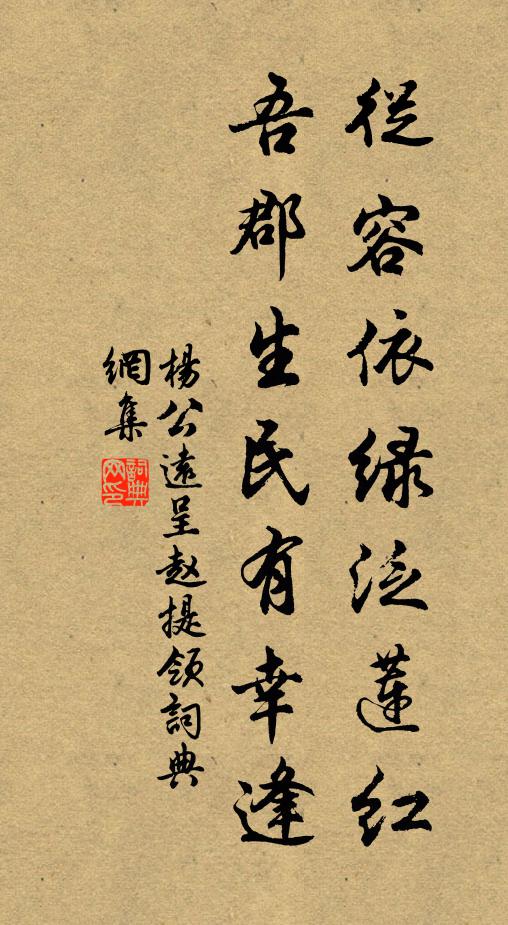 從容依绿泛蓮红
吾郡生民有幸逢
楊公遠呈赵提領詞典
網集
詞典网印